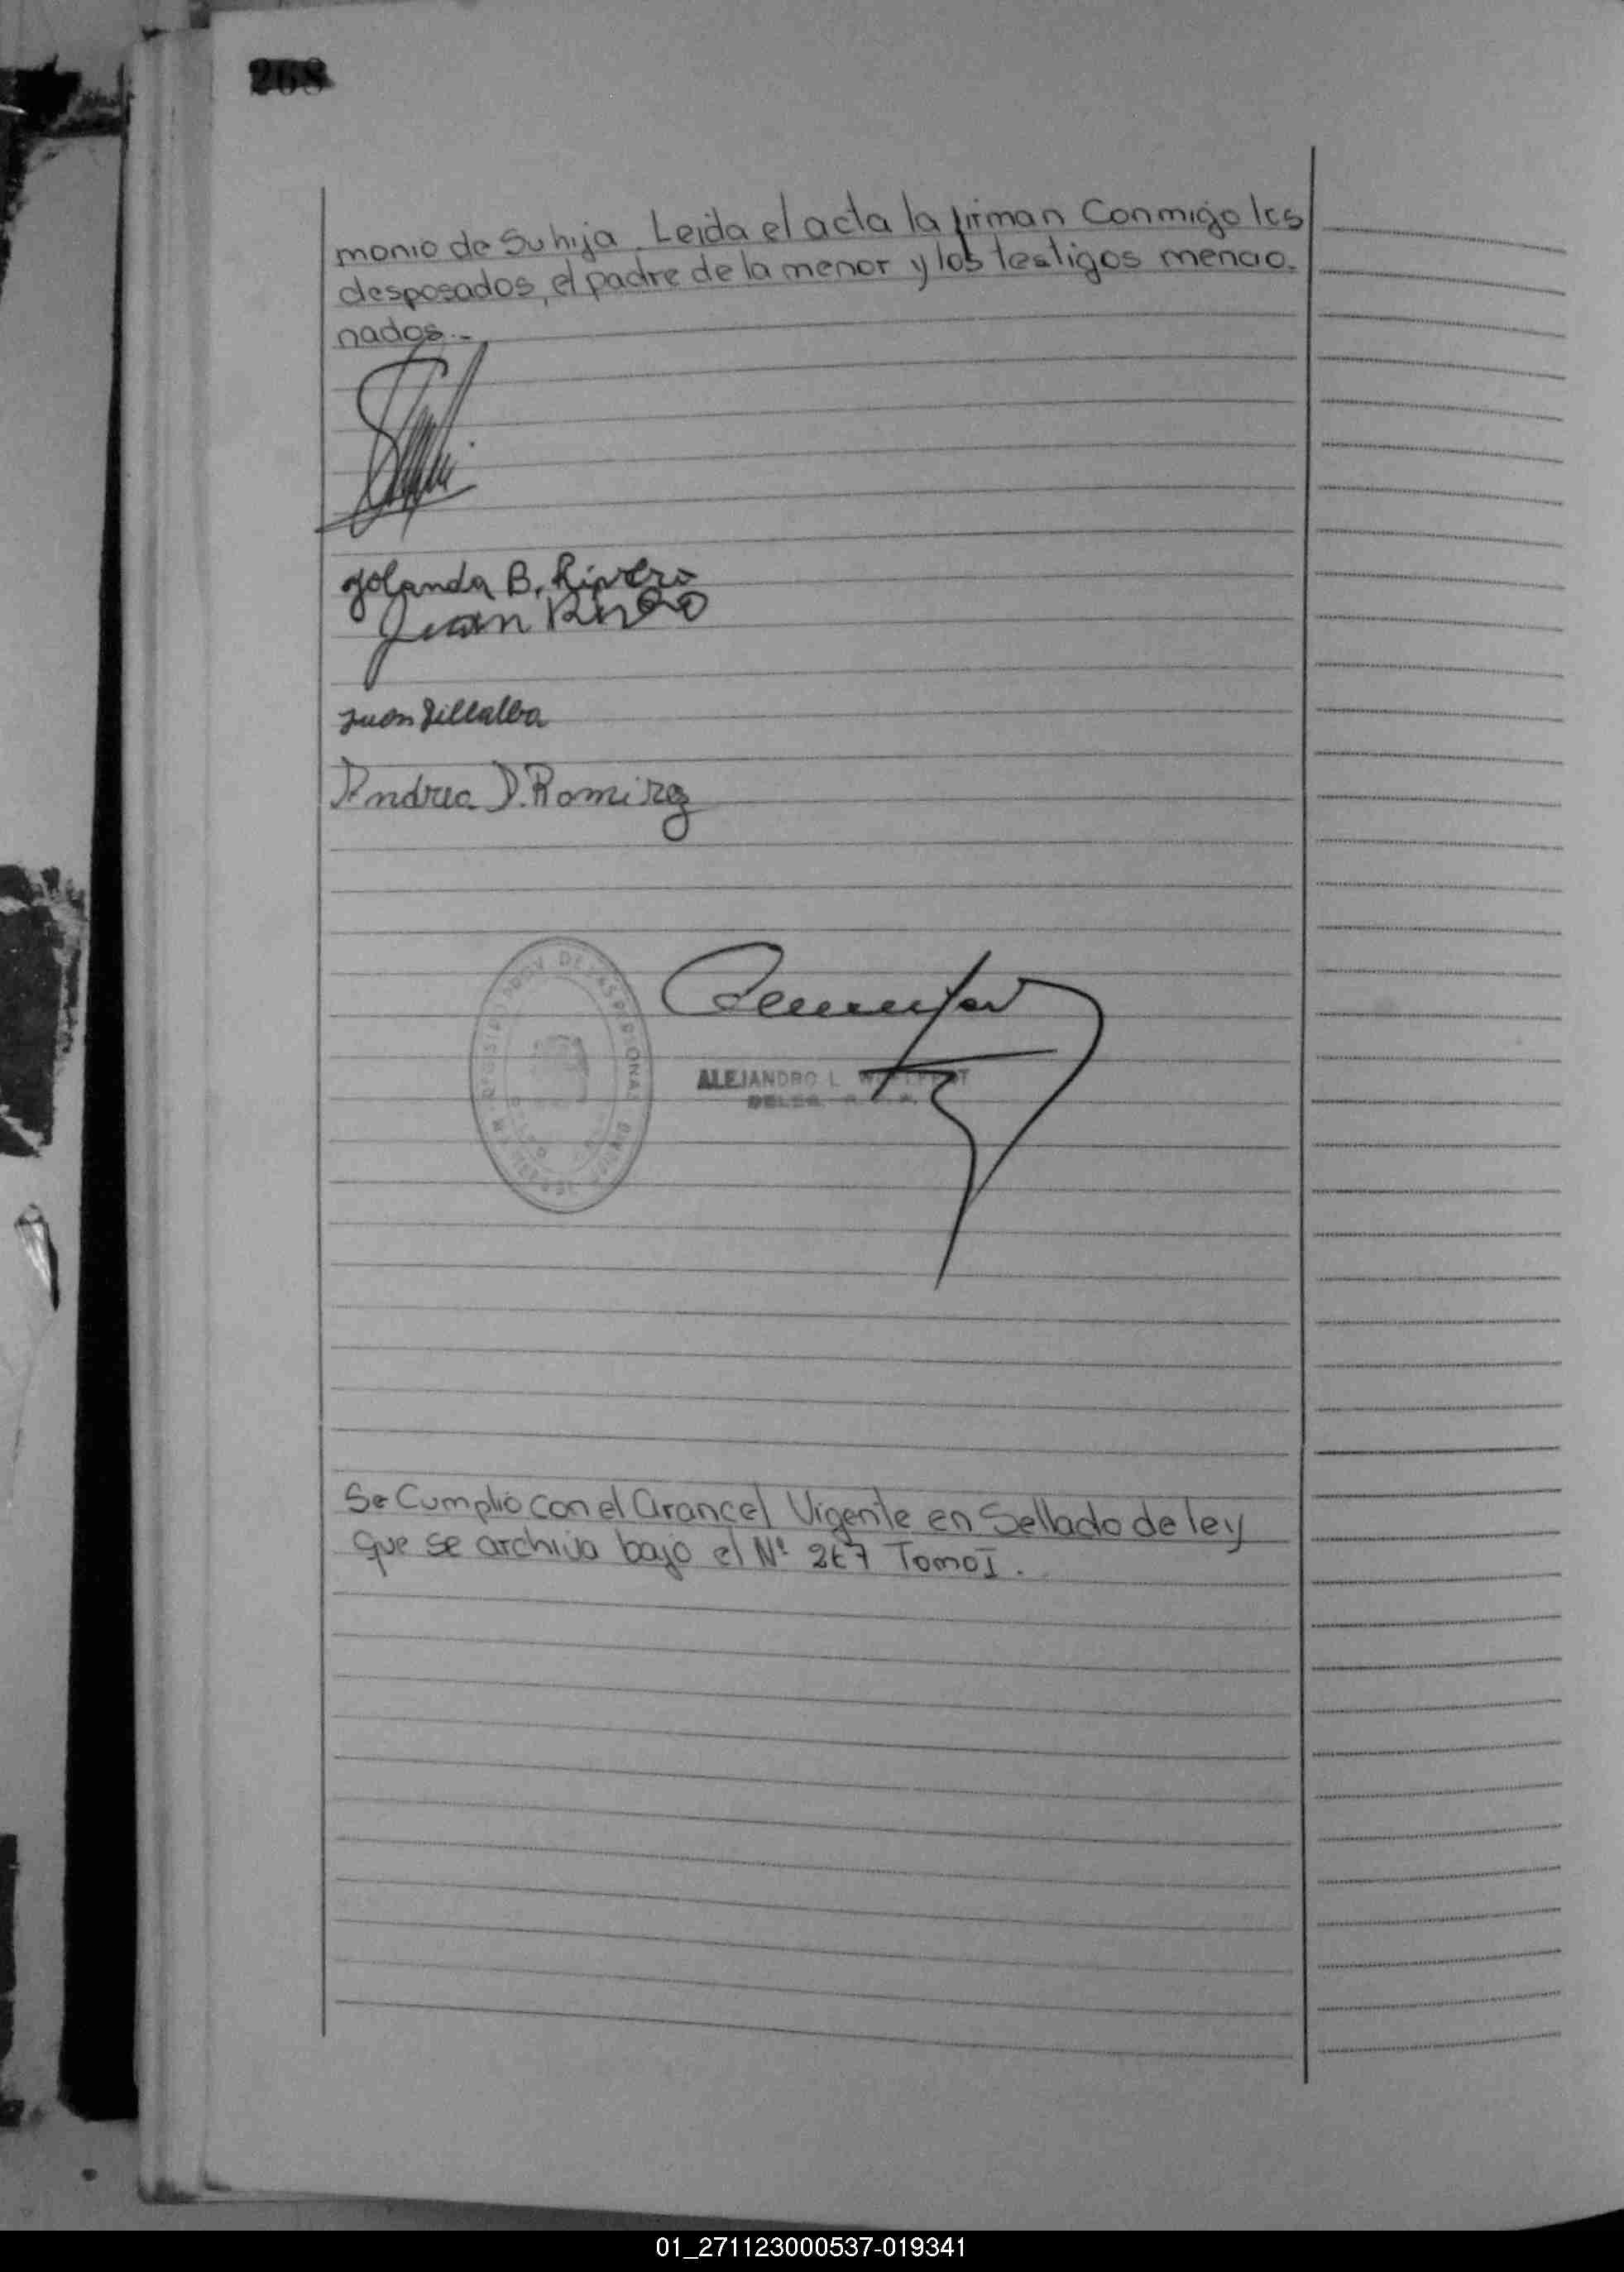 268
monio de Su hija. Leida el acta la firman Conmigo los
desposados, el padre de la menor y los testigos mencio-
nados.-
Yolanda B. Rivero
Juan Rivero
Juan Villalba
Andrea D. Ramirez
REGISTRO PROV. DE LAS PERSONAS
ALEJANDRO L.
DELEG.
Se Cumplió con el Arancel Vigente en Sellado de ley
que se archiva bajo el Nº 267 Tomo I.
01_271123000537-019341